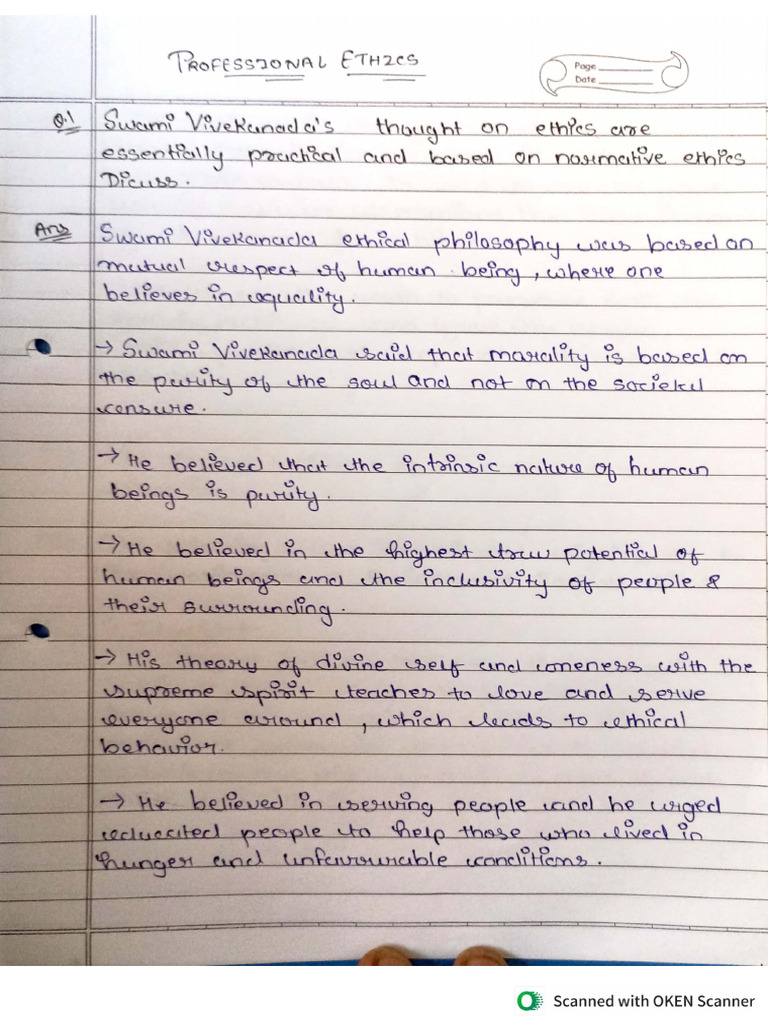 PROFESSIONAL ETHICS
Page
Date
Q.1 Swami Vivekanada's thought on ethics are
essentially practical and based on normative ethics
Dicuss.
Ans Swami Vivekanada ethical philosophy was based on
mutual respect of human being, where one
believes in equality.
→ Swami Vivekanada said that marality is based on
the purity of the soul and not on the societal
censure.
→ He believed that the intrinsic nature of human
beings is purity.
→ He believed in the highest true potential of
human beings and the inclusivity of people &
their surrounding.
→ His theory of divine self and oneness with the
supreme spirit teaches to love and serve
everyone around, which leads to ethical
behavior.
→ He believed in serving people and he urged
educated people to help those who lived in
hunger and unfavourable conditions.
Scanned with OKEN Scanner